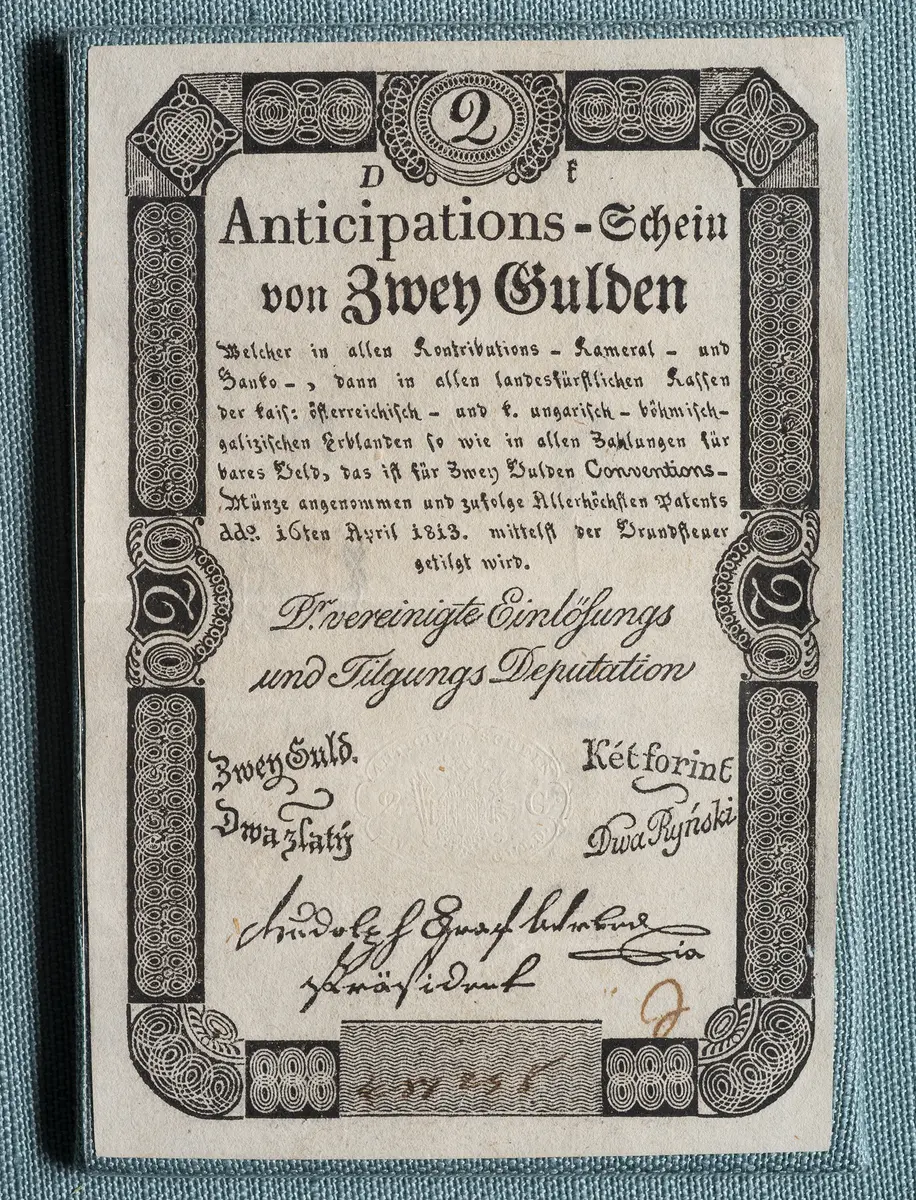 2
D f
Anticipations-Schein
von Zwey Gulden
Welcher in allen Kontributions - Kameral - und
Banko -, dann in allen landesfürstlichen Kassen
der kais: österreichisch - und k. ungarisch - böhmisch-
galizischen Erblanden so wie in allen Zahlungen für
bares Geld, das ist für Zwey Gulden Conventions-
Münze angenommen und zufolge Allerhöchsten Patents
ddo. 16ten April 1813. mittelst der Grundsteuer
getilgt wird.
2
2
Dr. vereinigte Einlösungs
und Tilgungs Deputation
Zwey Guld.
Két forint
Dwa zlatý
Dwa Ryński
Rudolph Graf Wrbna
Präsident